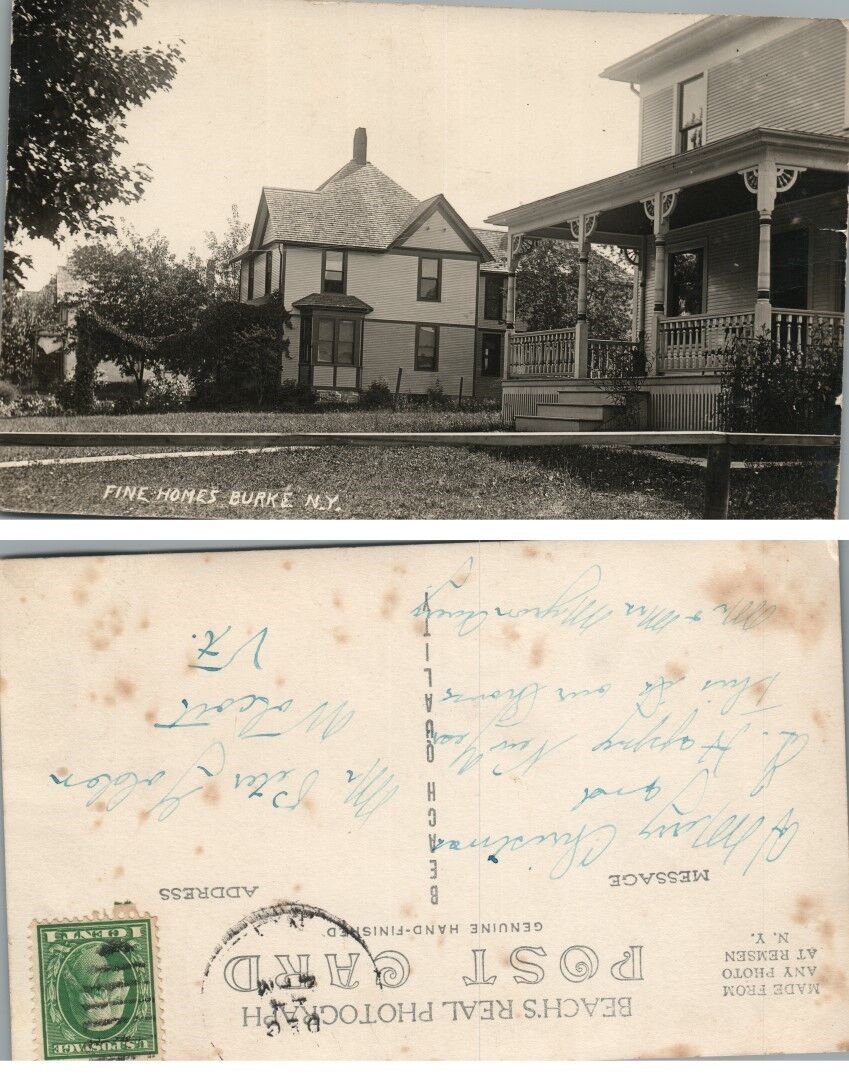 FINE HOMES BURKE N.Y.
BEACH'S REAL PHOTOGRAPH
POST CARD
GENUINE HAND-FINISHED
MADE FROM
ANY PHOTO
AT REMSEN
N. Y.
MESSAGE
A Merry Christmas
and
A. Happy New Year
This is our home
Mr & Mrs Myron
BEACH QUALITY
ADDRESS
Mr Peter
Wolcott
Vt.
DEC
U.S. POSTAGE
1 CENT 1